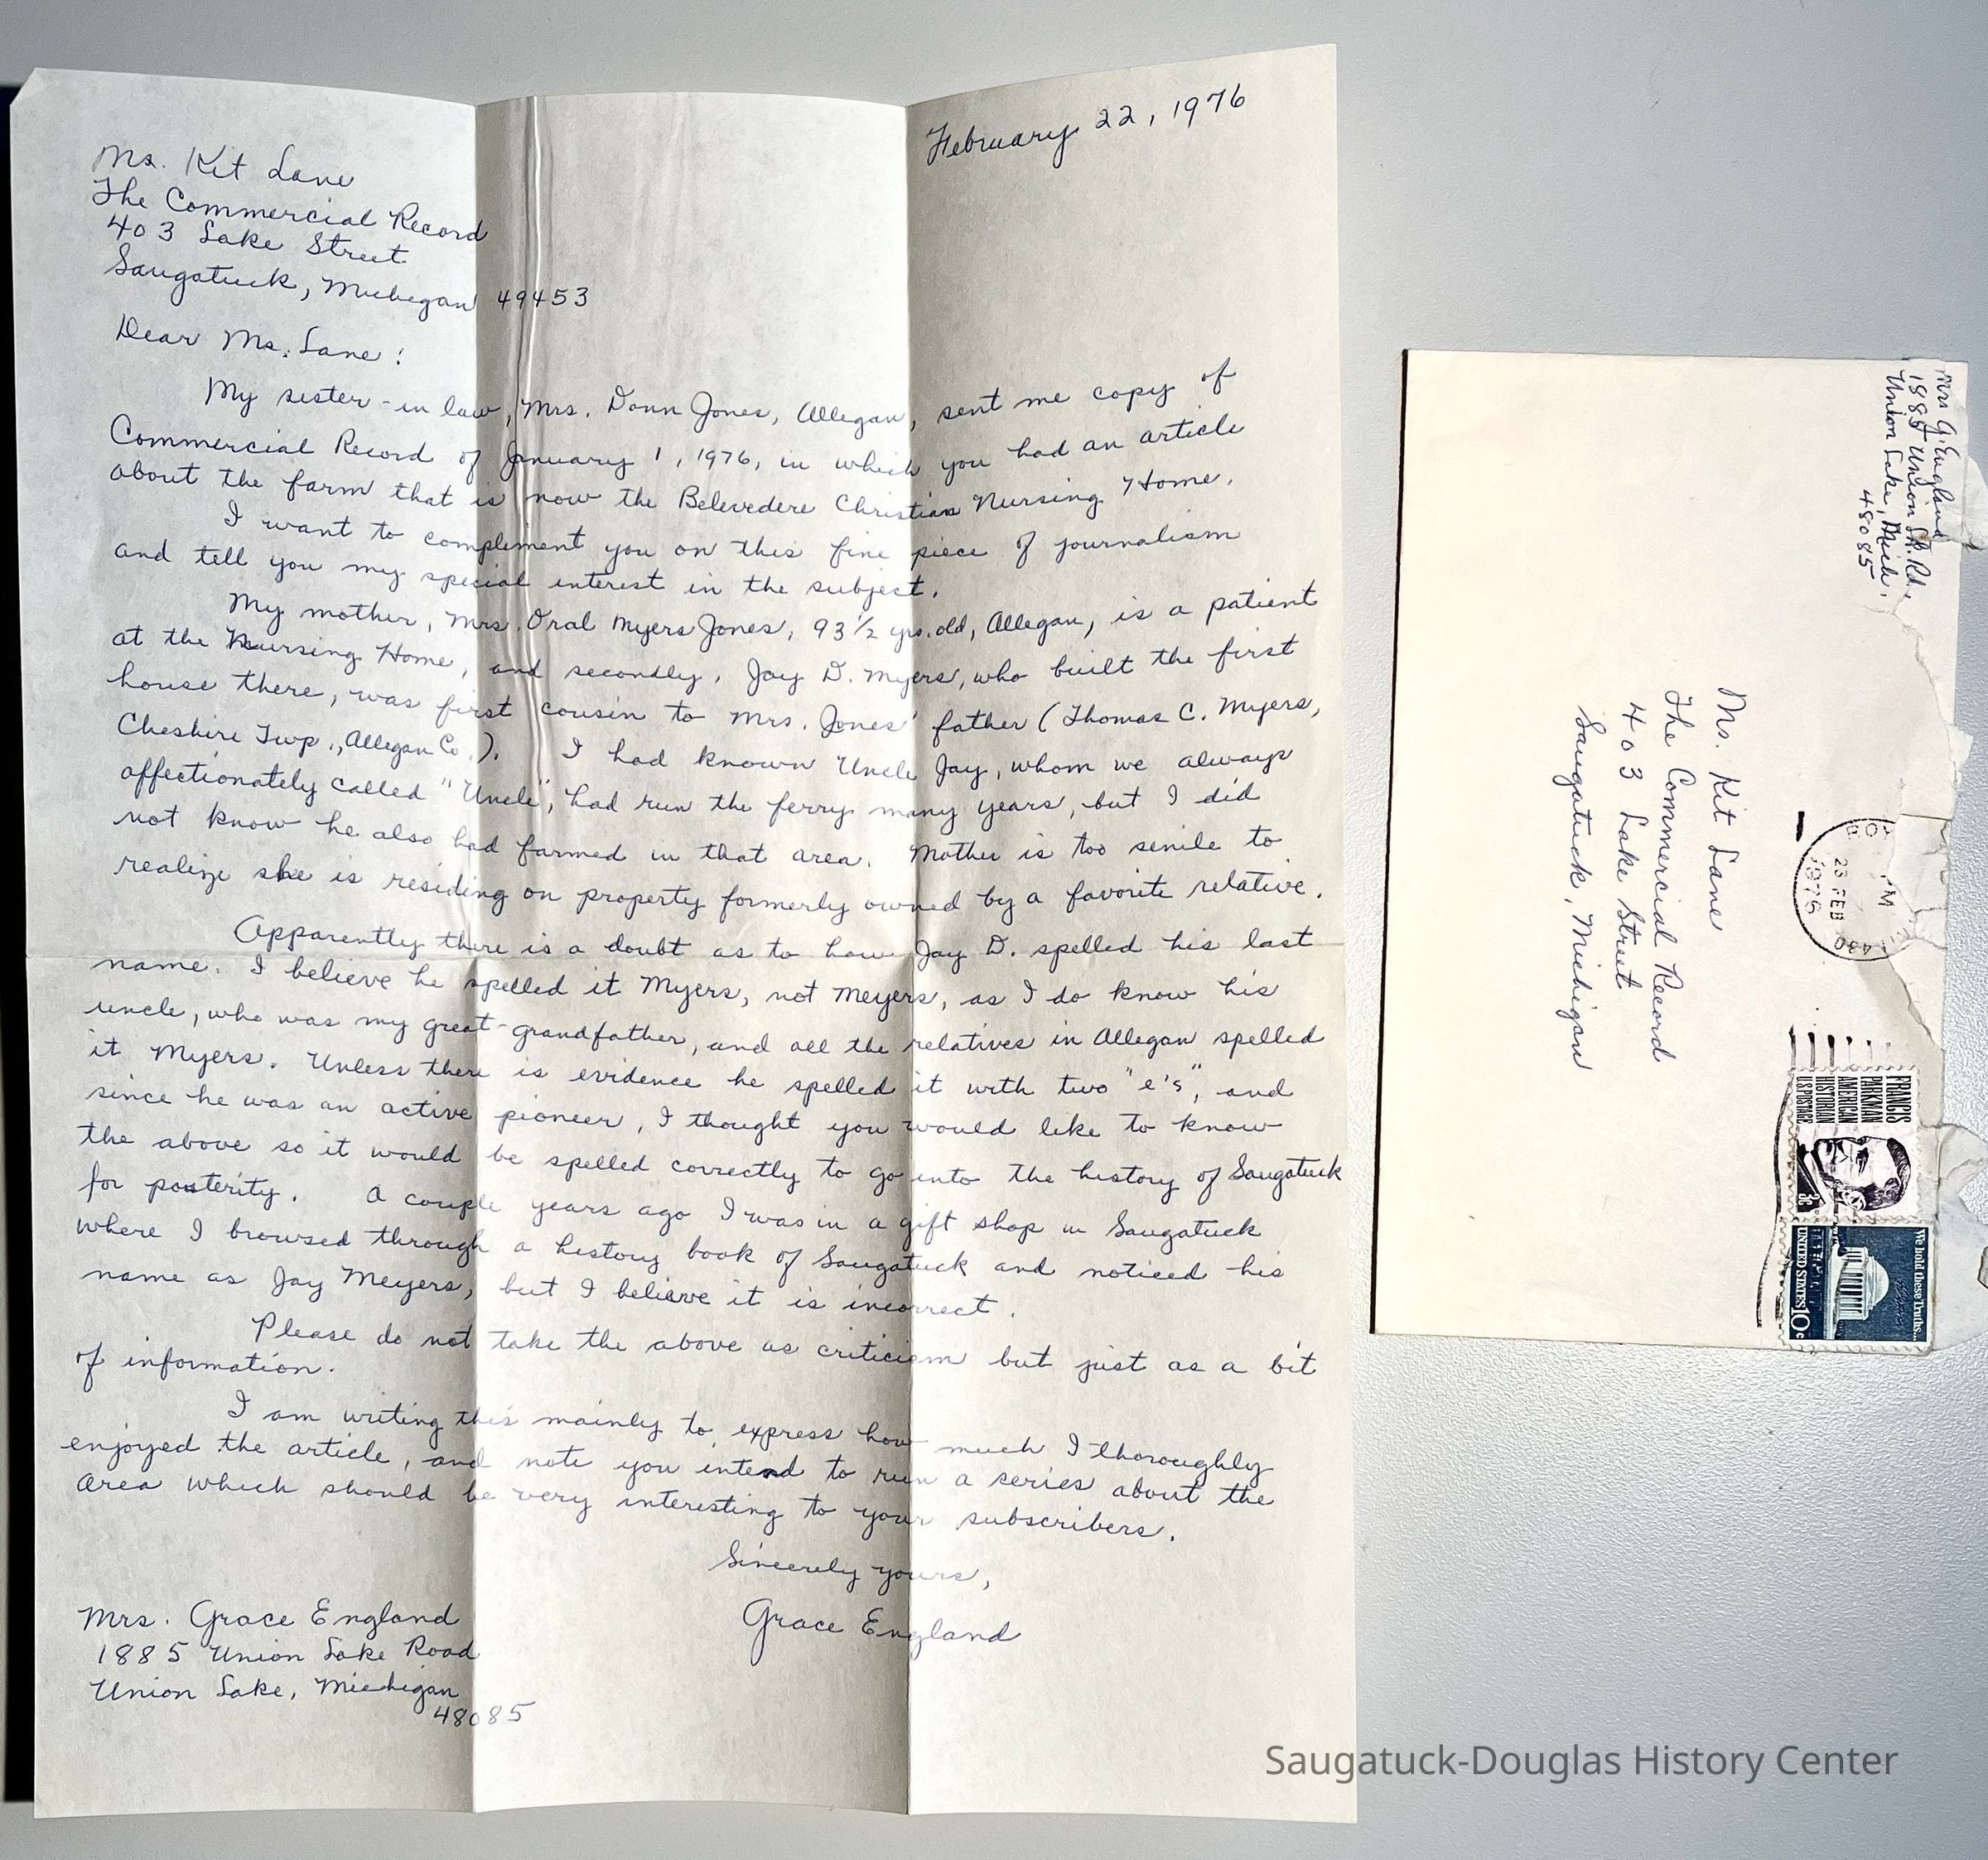 February 22, 1976
Ms. Kit Lane
The Commercial Record
403 Lake Street
Saugatuck, Michigan 49453
Dear Ms. Lane:
My sister-in law, Mrs. Donn Jones, Allegan, sent me copy of
Commercial Record of January 1, 1976, in which you had an article
about the farm that is now the Belevedere Christian Nursing Home.
I want to compliment you on this fine piece of journalism
and tell you my special interest in the subject.
My mother, Mrs. Oral Myers Jones, 93 1/2 yrs. old, Allegan, is a patient
at the Nursing Home, and secondly, Jay D. Myers, who built the first
house there, was first cousin to Mrs. Jones' father (Thomas C. Myers,
Cheshire Twp., Allegan Co.). I had known Uncle Jay, whom we always
affectionately called "Uncle", had run the ferry many years, but I did
not know he also had farmed in that area. Mother is too senile to
realize she is residing on property formerly owned by a favorite relative.
Apparently there is a doubt as to how Jay D. spelled his last
name. I believe he spelled it Myers, not Meyers, as I do know his
uncle, who was my great-grandfather, and all the relatives in Allegan spelled
it Myers. Unless there is evidence he spelled it with two "e's", and
since he was an active pioneer, I thought you would like to know
the above so it would be spelled correctly to go into the history of Saugatuck
for posterity. A couple years ago I was in a gift shop in Saugatuck
where I browsed through a history book of Saugatuck and noticed his
name as Jay Meyers, but I believe it is incorrect.
Please do not take the above as criticism but just as a bit
of information.
I am writing this mainly to express how much I thoroughly
enjoyed the article, and note you intend to run a series about the
area which should be very interesting to your subscribers.
Sincerely yours,
Grace England
Mrs. Grace England
1885 Union Lake Road
Union Lake, Michigan
48085
Mrs G. England
1885 Union Lk. Rd.
Union Lake, Mich.
48085
Ms. Kit Lane
The Commercial Record
403 Lake Street
Saugatuck, Michigan
PM
23 FEB
1976
FRANCIS
PARKMAN
AMERICAN
HISTORIAN
U.S. POSTAGE
3c
We hold these Truths...
UNITED STATES 10c
Saugatuck-Douglas History Center